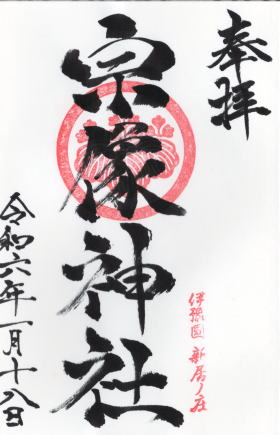 奉拝
宗像神社
伊豫國 新居ノ庄
令和六年一月十八日